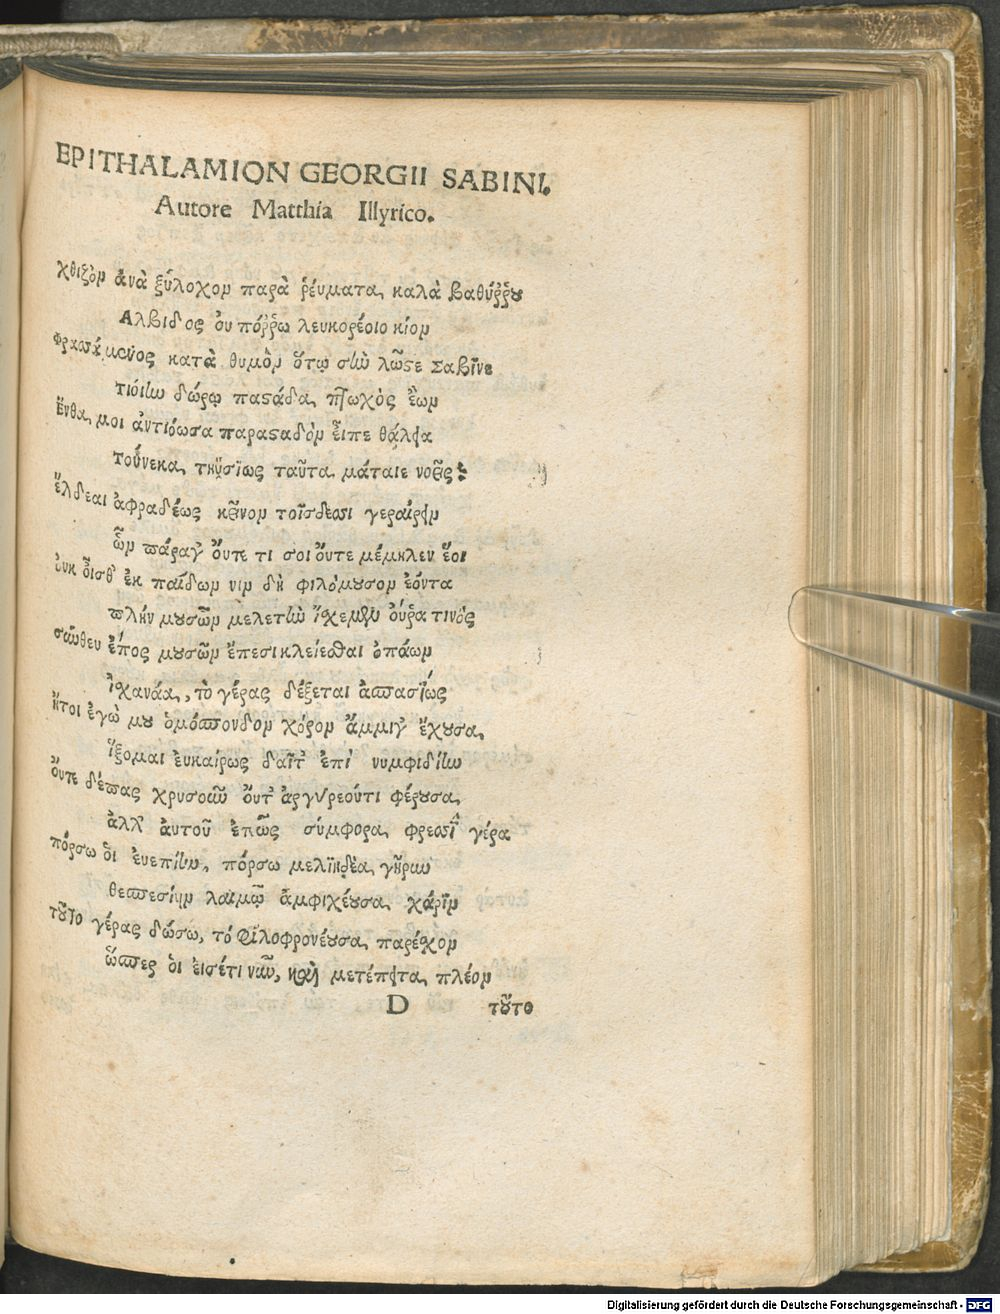 EPITHALAMION GEORGII SABINI.
Autore Matthia Illyrico.
χθιζὸν ἀνὰ ξύλοχον παρὰ ῥεύματα καλὰ βαθύῤῥου
Αλβιδος ὀυ πόῤῥω λευκορέοιο κίον
Φρασσάμενος κατὰ θυμὸν ὅτῳ σὺν λῶστε Σαβῖνε
τιοίην δώρῳ παστάδα πτωχὸς ἐὼν
Ἔνθα μοι ἀντιόωσα παρασαδὸν ἔιπε θάλεια
τούνεκα τηϋσίως ταῦτα μάταιε νοεῖς;
ἔλδεαι ἀφραδέως κεῖνον τοῖσδεσσι γεραίρειν
ὧν πάραγ' ὄυτε τι σοι ὄυτε μέμηλεν ἕοι
ὀυκ ὄισθ' ἐκ παίδων νιν δὴ φιλόμουσον ἐόντα
πλήν μουσῶν μελετὼν ἴχεμεν ὀύρα τινός
ἔπος μουσῶν ἔπεσι κλείεσθαι ὀπάων
ἰχανάα, τὸ γέρας δέξεται ἀσπασίως
ἤτοι ἐγὼ μου ὁμόσπονδον χόρον ἄμμιγ' ἔχουσα
ἵξομαι ἐυκαίρως δαῖτ' ἐπὶ νυμφιδίην
ὄυτε δέπας χρυσοῦν ὄυτ' ἀργυρεούτι φέρουσα
ἀλλ' ἀυτοῦ ἐπῶς σύμφορα φρεσσὶ γέρα
πόρσω ὅι ἐυεπίην, πόρσω μελιηδέα γῆρυν
θεσπεσίην λαιμῷ ἀμφιχέουσα χάριν
τοῦτο γέρας δώσω, τό φιλοφρονέουσα παρέχον
ὥσπερ ὅι ἐισέτι νῦν, καὶ μετέπειτα πλέον
D τοῦτο
Digitalisierung gefördert durch die Deutsche Forschungsgemeinschaft - DFG